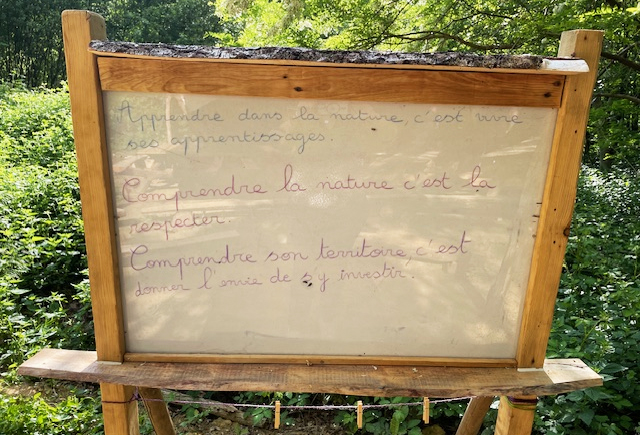 Apprendre dans la nature, c'est vivre
ses apprentissages.
Comprendre la nature c'est la
respecter.
Comprendre son territoire, c'est
donner l'envie de s'y investir.